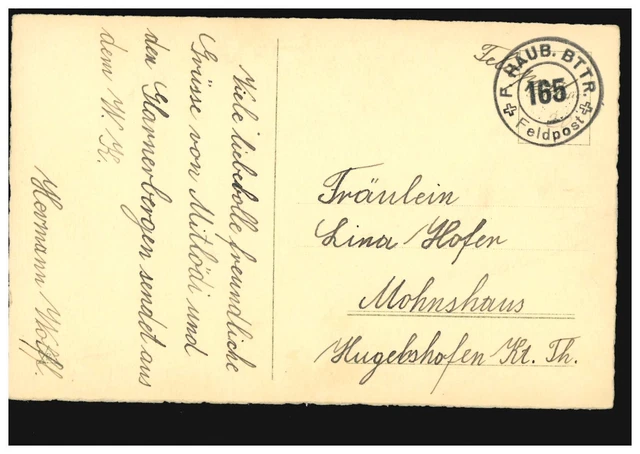 Viele liebevolle freundliche
Grüsse von Mitlödi und
den Glarnerbergen sendet aus
dem W. K.
Hermann Wolf.
F. HAUB. BTTR.
165
Feldpost
Fräulein
Lina Hofer
Mohnshaus
Hugelshofen Kt. Th.